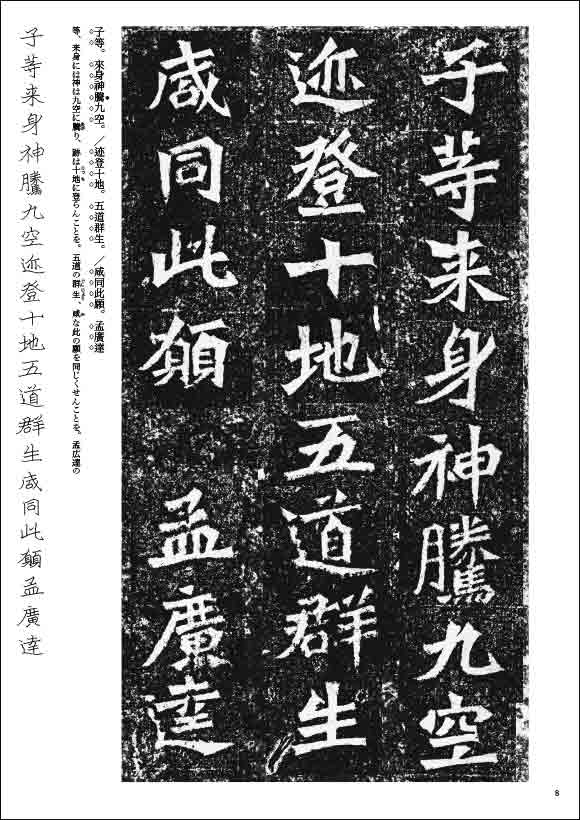 子等来身神騰九空
迹登十地五道群生
咸同此願 孟廣達
子等。來身神騰九空。／迹登十地。五道群生。／咸同此願。孟廣達
等、来身には神は九空に騰り、跡は十地に登らんことを。五道の群生、咸な此の願を同じくせんことを。孟広達の
子等来身神騰九空迹登十地五道群生咸同此願孟廣達
8